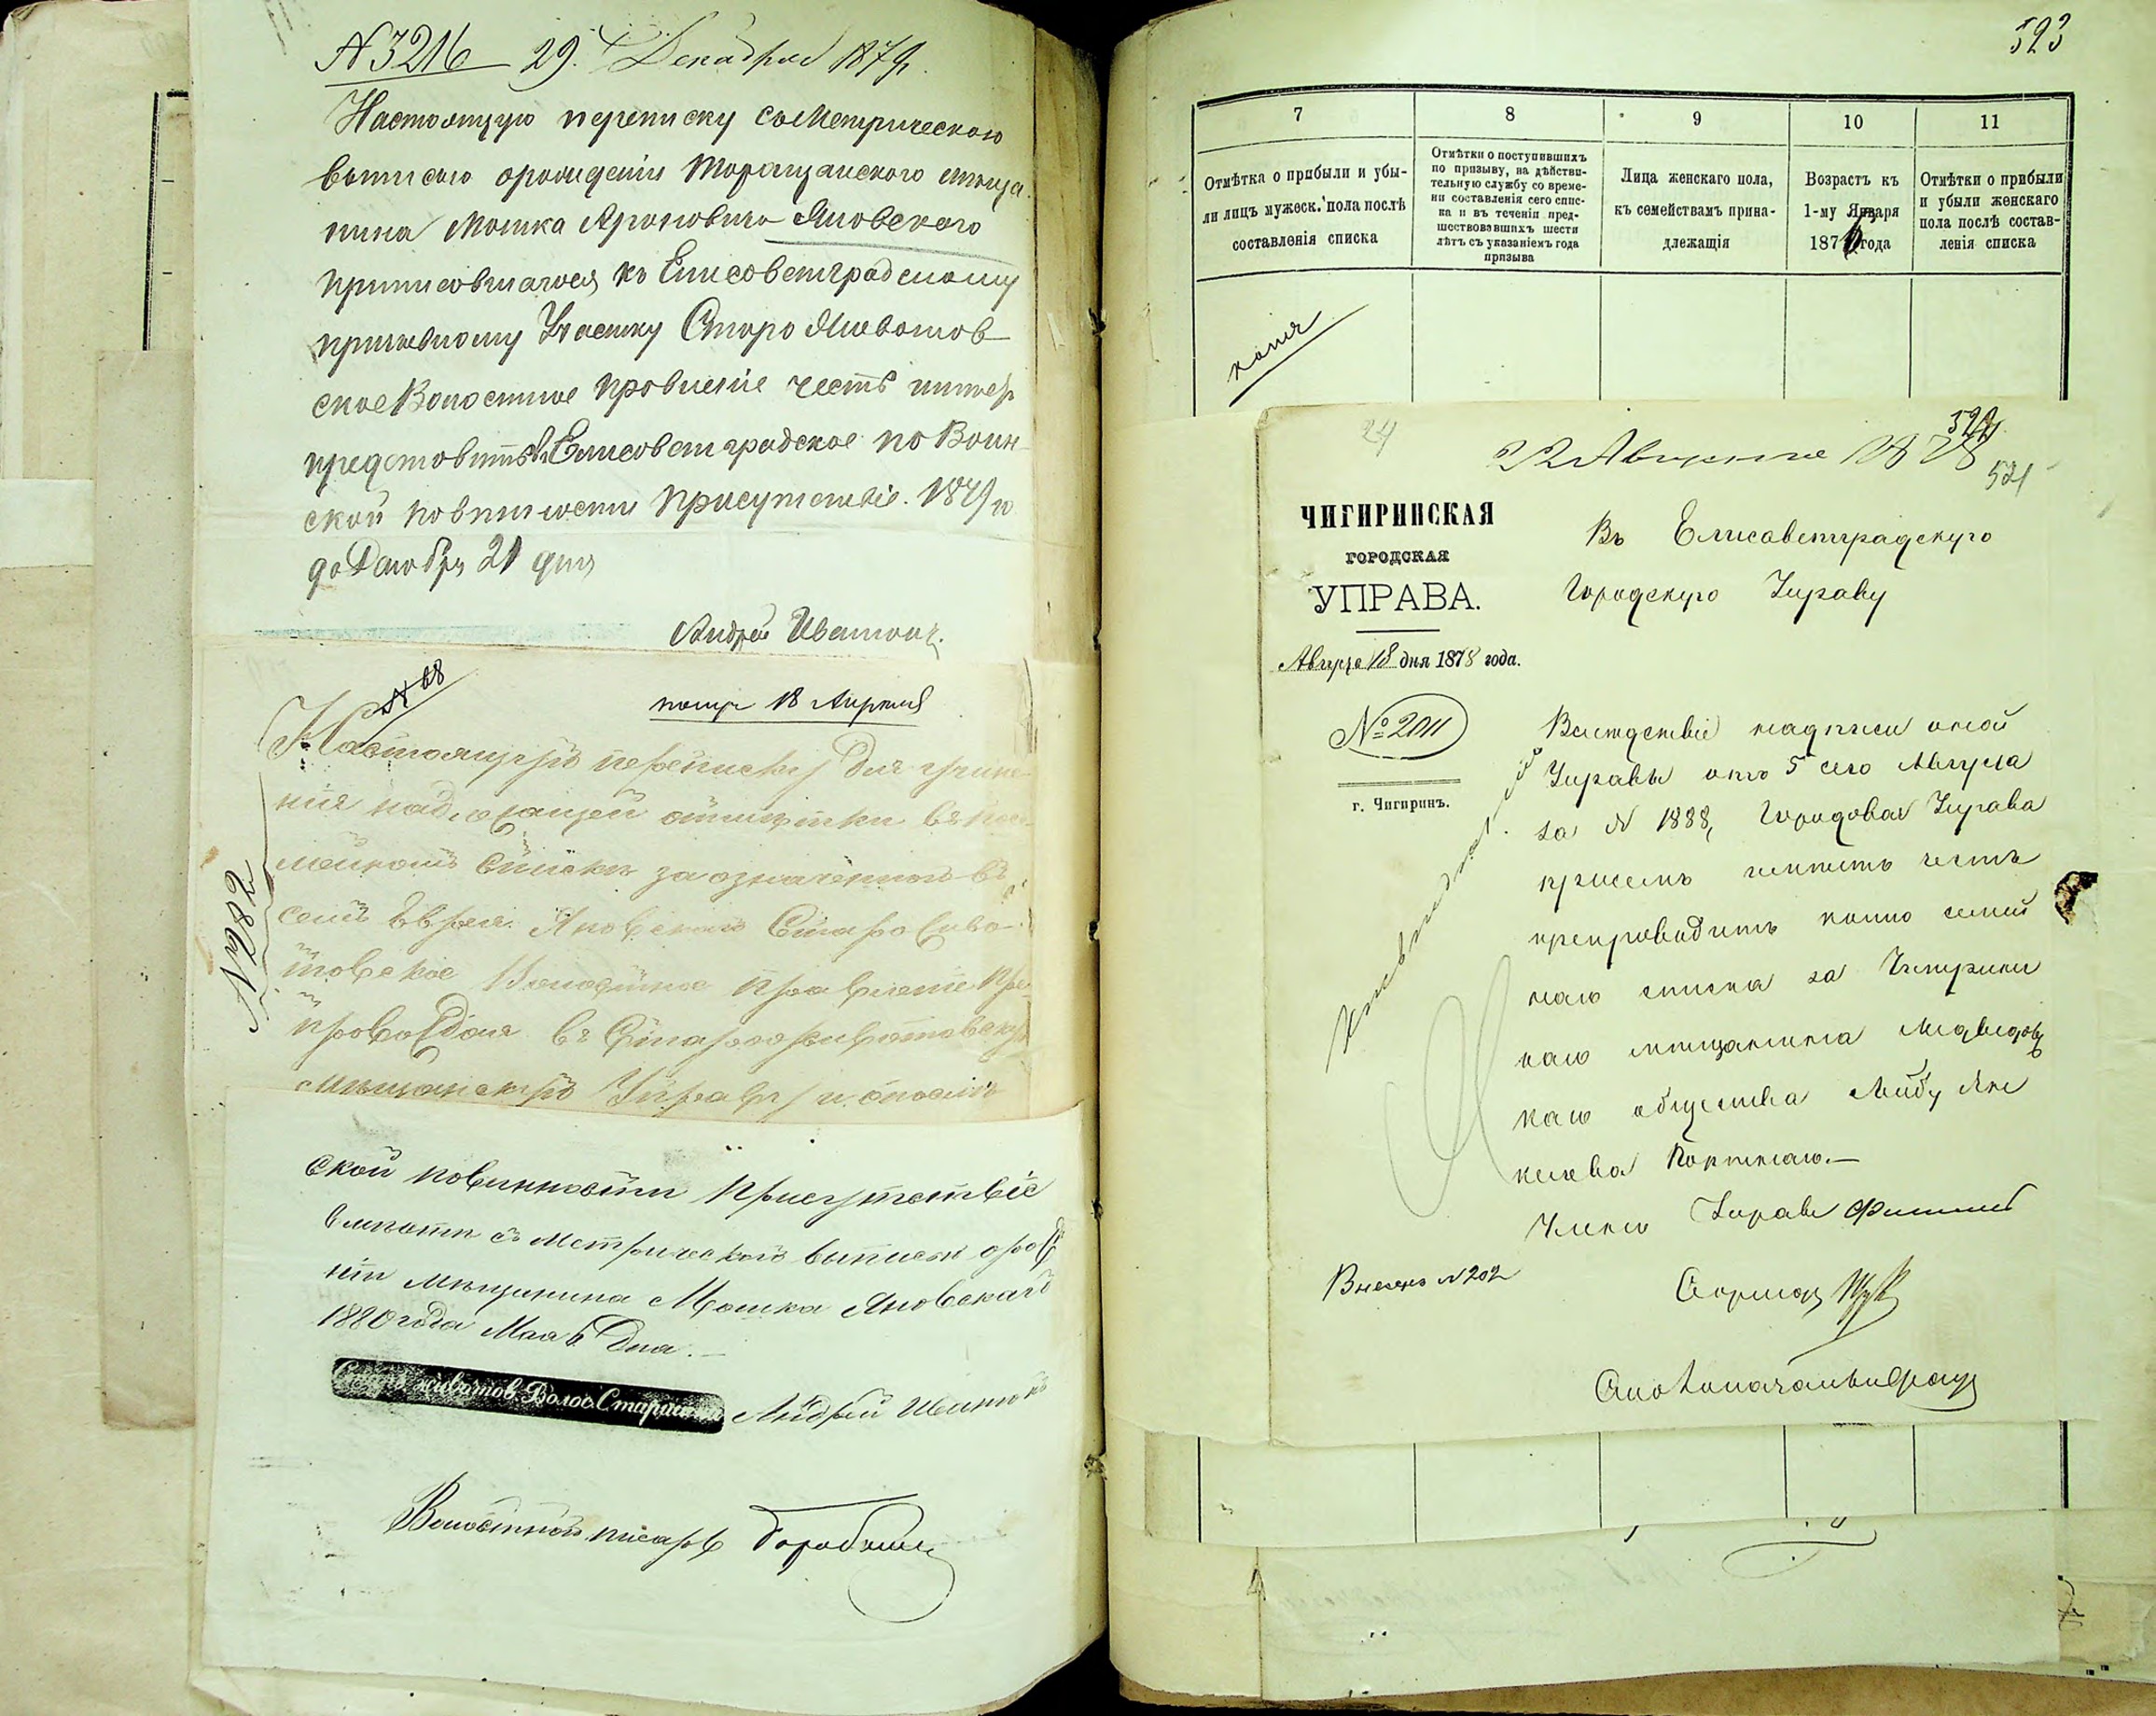 N 3216 29. Декабря 1879.
Настоящую переписку съ Метрическою
выписью о рождении Таращанского мѣща
нина Мошка Ароновича Яновского
приписовшагося къ Елисоветградскому
призывному Участку Старо Животов-
ское Волостное Провление честь имеет
предстовить въ Елисоветградское по Воин-
ской повинности Присутствие. 1879 го
да Декобря 21 дня
Андрей Иванюк
N 68
получ 18 Апреля
Настоящую переписку для учине-
ния надлежащей отмѣтки въ
мейномъ спискѣ за означенного въ
семъ Еврея Яновского Старо Живо-
товское Волостное Правление Пре-
провождая въ Староживотовскую
Мѣщанскую Управу и
N 282
ской повинности Присутствіе
вмѣстѣ съ Метрической выписью о рожде
ніи мѣщанина Мошка Яновскаго
1880 года Мая 6 Дня.
Старо животов. Волос. Старшина Андрей Иванюкъ
Волостной писарь
523
7 8 9 10 11
Отмѣтка о прибыли и убы-
ли лицъ мужеск. пола послѣ
составленія списка
Отмѣтки о поступившихъ
по призыву, на дѣйстви-
тельную службу со време-
ни составленія сего спис-
ка и въ теченіи пред-
шествовавшихъ шести
лѣтъ съ указаніемъ года
призыва
Лица женскаго пола,
къ семействамъ прина-
длежащія
Возрастъ къ
1-му Января
187 года
Отмѣтки о прибыли
и убыли женскаго
пола послѣ состав-
ленія списка
копия
24
522
22 Августа 1878
521
ЧИГИРИНСКАЯ
ГОРОДСКАЯ
УПРАВА.
Августа 18 дня 1878 года.
№ 2011
г. Чигиринъ.
Въ Елисаветградскую
Городскую Управу
Вслѣдствіе надписи оной
Управы отъ 5 сего Августа
за N 1888, Городовая Управа
при семъ имѣетъ честь
препроводить копію семей
наго списка за Чигирин
скаго мѣщанина Медведов
каго общества Лейбу Ян
келева Портного.—
Членъ Управы
Внесено N 202
Секретарь
Столоначальникъ